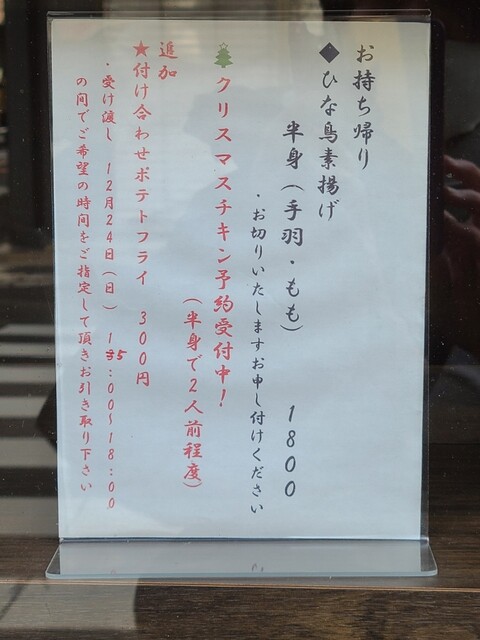 お持ち帰り
◆ひな鳥素揚げ
半身(手羽・もも) 1800
・お切りいたしますお申し付けください
🎄クリスマスチキン予約受付中!
(半身で2人前程度)
追加
★付け合わせポテトフライ 300円
・受け渡し 12月24日(日) 15:00~18:00
の間でご希望の時間をご指定して頂きお引き取り下さい